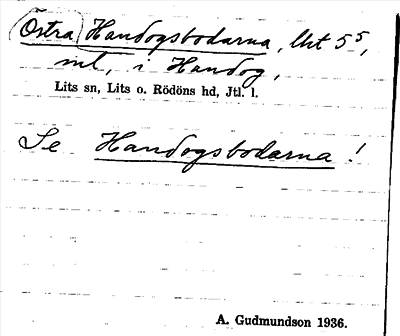 (Östra) Handogsbodarna, lht 5⁵,
mt, i Handog,
Lits sn, Lits o. Rödöns hd, Jtl. l.
Se Handogsbodarna!
A. Gudmundson 1936.